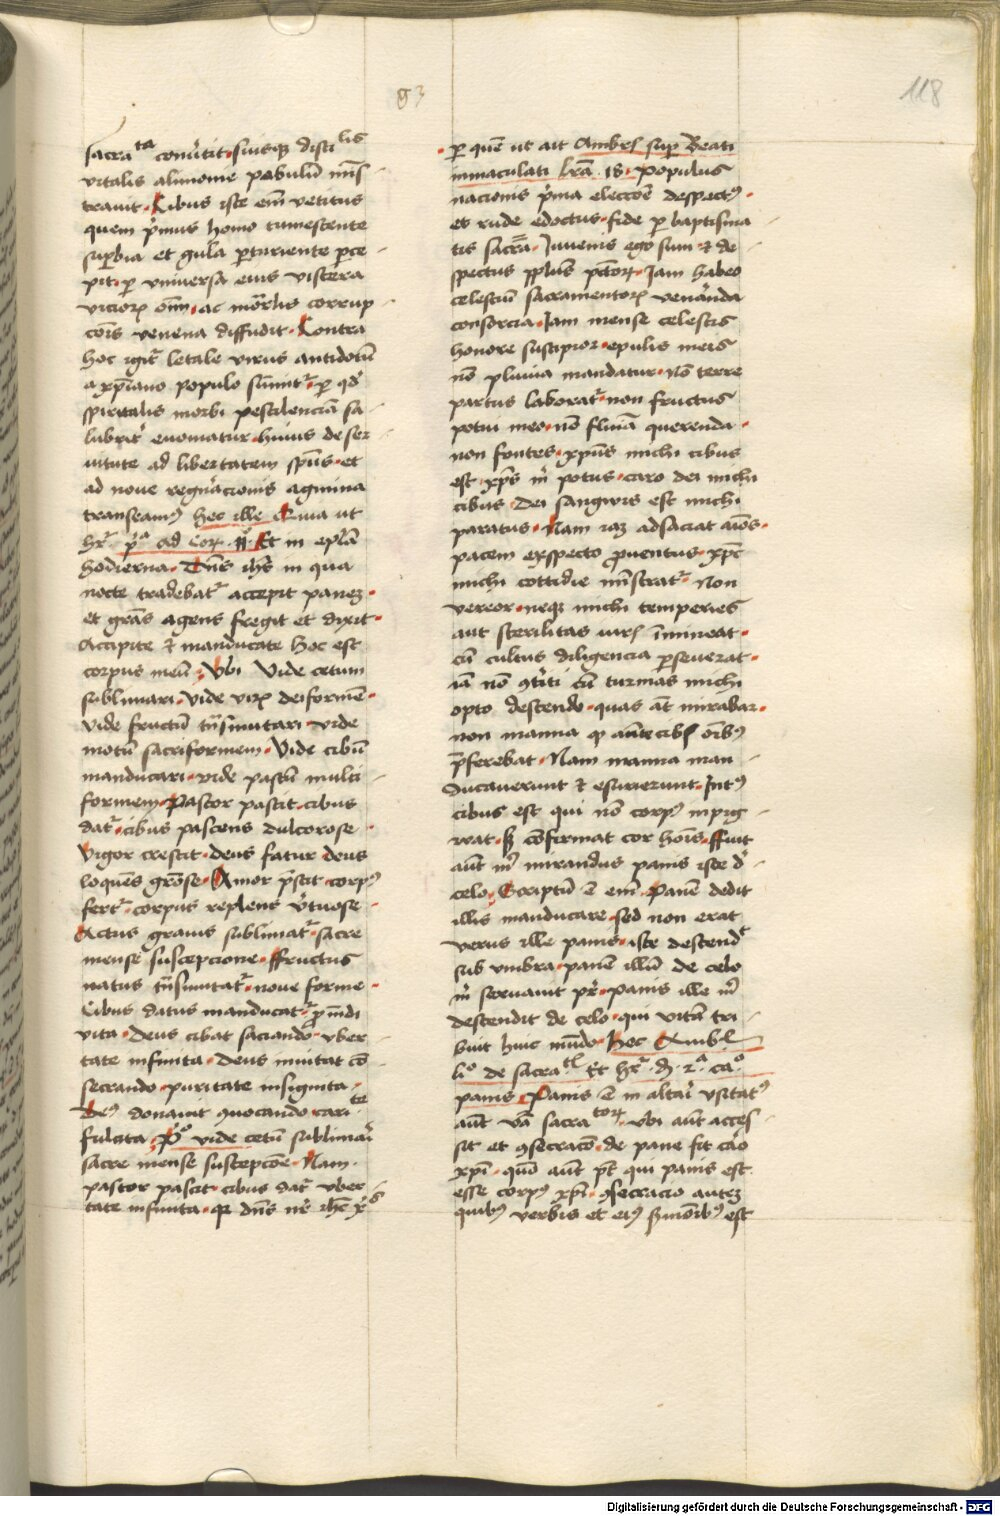 93
118
sacrata con̄utit · suisqȝ disci lis
vitalis alimonie pabulū mīs
trauit · Cibus iste em̄ vetitus
quem p̄mus homo tumescente
suꝑbia et gula ꝑturiente ꝑce
pit · ꝑ vniuersa eius viscera
vicioꝝ om̄ · ac mortis corrup
cōis venena diffudit · Contra
hoc igit̄ letale virus antidotū
a xp̄iano populo sumit̄ · ꝑ qd̄
spiritalis morbi pestilenciā sa
lubrit̄ euomatur · huius de ser
uitute ad libertatem sp̄us · et
ad noue regn̄acionis agmina
transeamꝰ hec ille Quia ut
hr̄ p̄a ad Coꝝ · 11 · Et in ep̄la
hodierna · Dn̄s ih̄s in qua
nocte tradebat̄ accepit paneȝ
et grās agens fregit et dixit
Accipite et manducate hoc est
corpus meū · Vbi Vide cetum
sublimari · Vide viꝝ deiformē
Vide fructū tn̄smutari · vide
motū sacriformem · Vide cibū
manducari · vide pastū multi
formem · Pastor pascit · cibus
dat̄ · cibus pascens dulcorose
Vigor crescit · deus fatur deus
loquēs grōse · Amor p̄scit · corpꝰ
fert̄ · corpus replens v̄tuose
Actus grauis sublimat̄ · sacre
mense suscepcione · ffructus
natus tn̄smutat̄ · noue forme
Cibus datus manducat̄ · ꝓ mūdi
vita · deus cibat saciando · vber
tate infinita · deus mutat cō
secrando · puritate insignita
Deꝰ donauit ꝯuocando cari te
fulcita · Pº vide cetū sublimari
sacre mense suscepcōe · Nam
pastor pascit · cibus dat̄ vber
tate infinita · qꝛ dn̄s nr̄ ihc̄ xp̄s
ꝑ quē ut ait Ambrs̄ suꝑ Beati
inmaculati lr̄a · 18 · populus
nacionis p̄ma eleccōe despectꝰ
et rude edoctus · fide ꝑ baptisma
tis sacrā · Iuuenis ego sum et de
spectus pplūs pc̄toꝝ · Iam habeo
celestiū sacramentoꝝ ven̄anda
consorcia · Iam mense celestis
honore suscipior · epulis meis
nō pluuia mandatur · nō terre
partus laborat̄ · non fructus
potui meo · nō flumē querenda
non fontes · xp̄us michi cibus
est · xp̄s m̄ potus · caro dei michi
cibus · Dei sangwis est michi
paratus · Nam iaȝ adsaciat aīos
pacem exspecto ꝓuentus · xp̄c
michi cottidie mīstrat̄ · Non
vereor · neqȝ michi temperies
aut sterilitas iuris īmineat
cū cultus diligencia ꝑseuerat
iā nō ꝯt̄iti cū turmas michi
opto descendo · quas āt mirabar
non manna qȝ ante cibꝰ om̄ibꝰ
p̄ferebat · Nam manna man
ducauerunt et esurierunt · Intꝰ
cibus est qui nō corpꝰ inpig
wat · sꝫ cōfirmat cor hoīs · ffuit
aūt m̄ mirandus panis iste d̄
celo · Scriptū ē em̄ · Panē dedit
illis manducare · sed non erat
verus ille panis · iste descende
sub vmbra · panē illū de celo
m̄ seruauit pr̄ · panis ille m̄
descendit de celo · qui vitā tri
buit huic mūdo · Hec Ambr̄
liº de sacra tl̄ Et hr̄ · di · 2a · ca º
panis · Panis ē in altari vsitatꝰ
aūt v̄a sacra toꝝ · vbi aūt acces
sit et ꝯsecracō · de pane fit caro
xp̄i · quō aūt pt̄ qui panis est
esse corpꝰ xp̄i · ꝯsecracio auteȝ
quibꝰ verbis et eiꝰ sermōibꝰ est
Digitalisierung gefördert durch die Deutsche Forschungsgemeinschaft - DFG